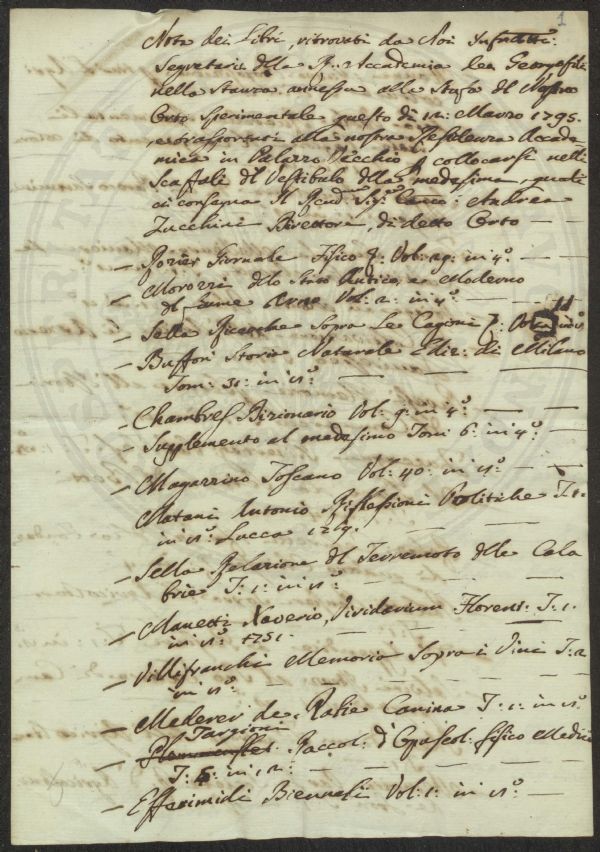 1
Nota dei Libri, ritrovati da Noi Infrascitti:
Segretario della R.e Accademia dei Georgofili
nella Stanza annessa alla Stufa del Nostro
Orto Sperimentale questo dì 12: Marzo 1795.
e trasportati alla nostra Residenza Accade
mica in Palazzo Vecchio p collocarsi nelli
Scaffali del Vestibolo della medesima, quali
ci consegna Il Rend.mo Sig.e Canco: Andrea
Zucchini Direttore, di detto Orto —
— Rozier Giornale Fisico f: Vol: 29: in 4.°
— Morozzi dello Stato Antico, e Moderno
del fiume Arno Vol: 2: in 4.° — — 11
— Sella Querche Sopra Le Cagioni f: Vol: in 12°
— Buffon Storia Naturale Ediz: di Milano
Tom: 31: in 12.° — — —
— Chambres Dizionario Vol: 9: in 4.° — —
— Supplemento al medesimo Tomi 6: in 4.° —
— Magazzino Toscano Vol: 40: in 12.° — —
Matani Antonio Riflessioni Politiche T: 1:
in 12.° Lucca 1779. — — —
— Sella Relazione del Terremoto delle Cala
brie T: 1: in 12.° — — —
— Manetti Xaverio, Viridarium Florent: T: 1.
in 12.° 1751. — — —
— Villifranchi Memoria Sopra i Vini T: 2
in 12.° — — —
— Mederer de Rabie Canina T: 1: in 12.°
— Targioni Raccol: d'Opuscol: fisico Medici
T: 5: in 12: — — —
— Efferimidi Biennesi Vol: 1: in 12.° —